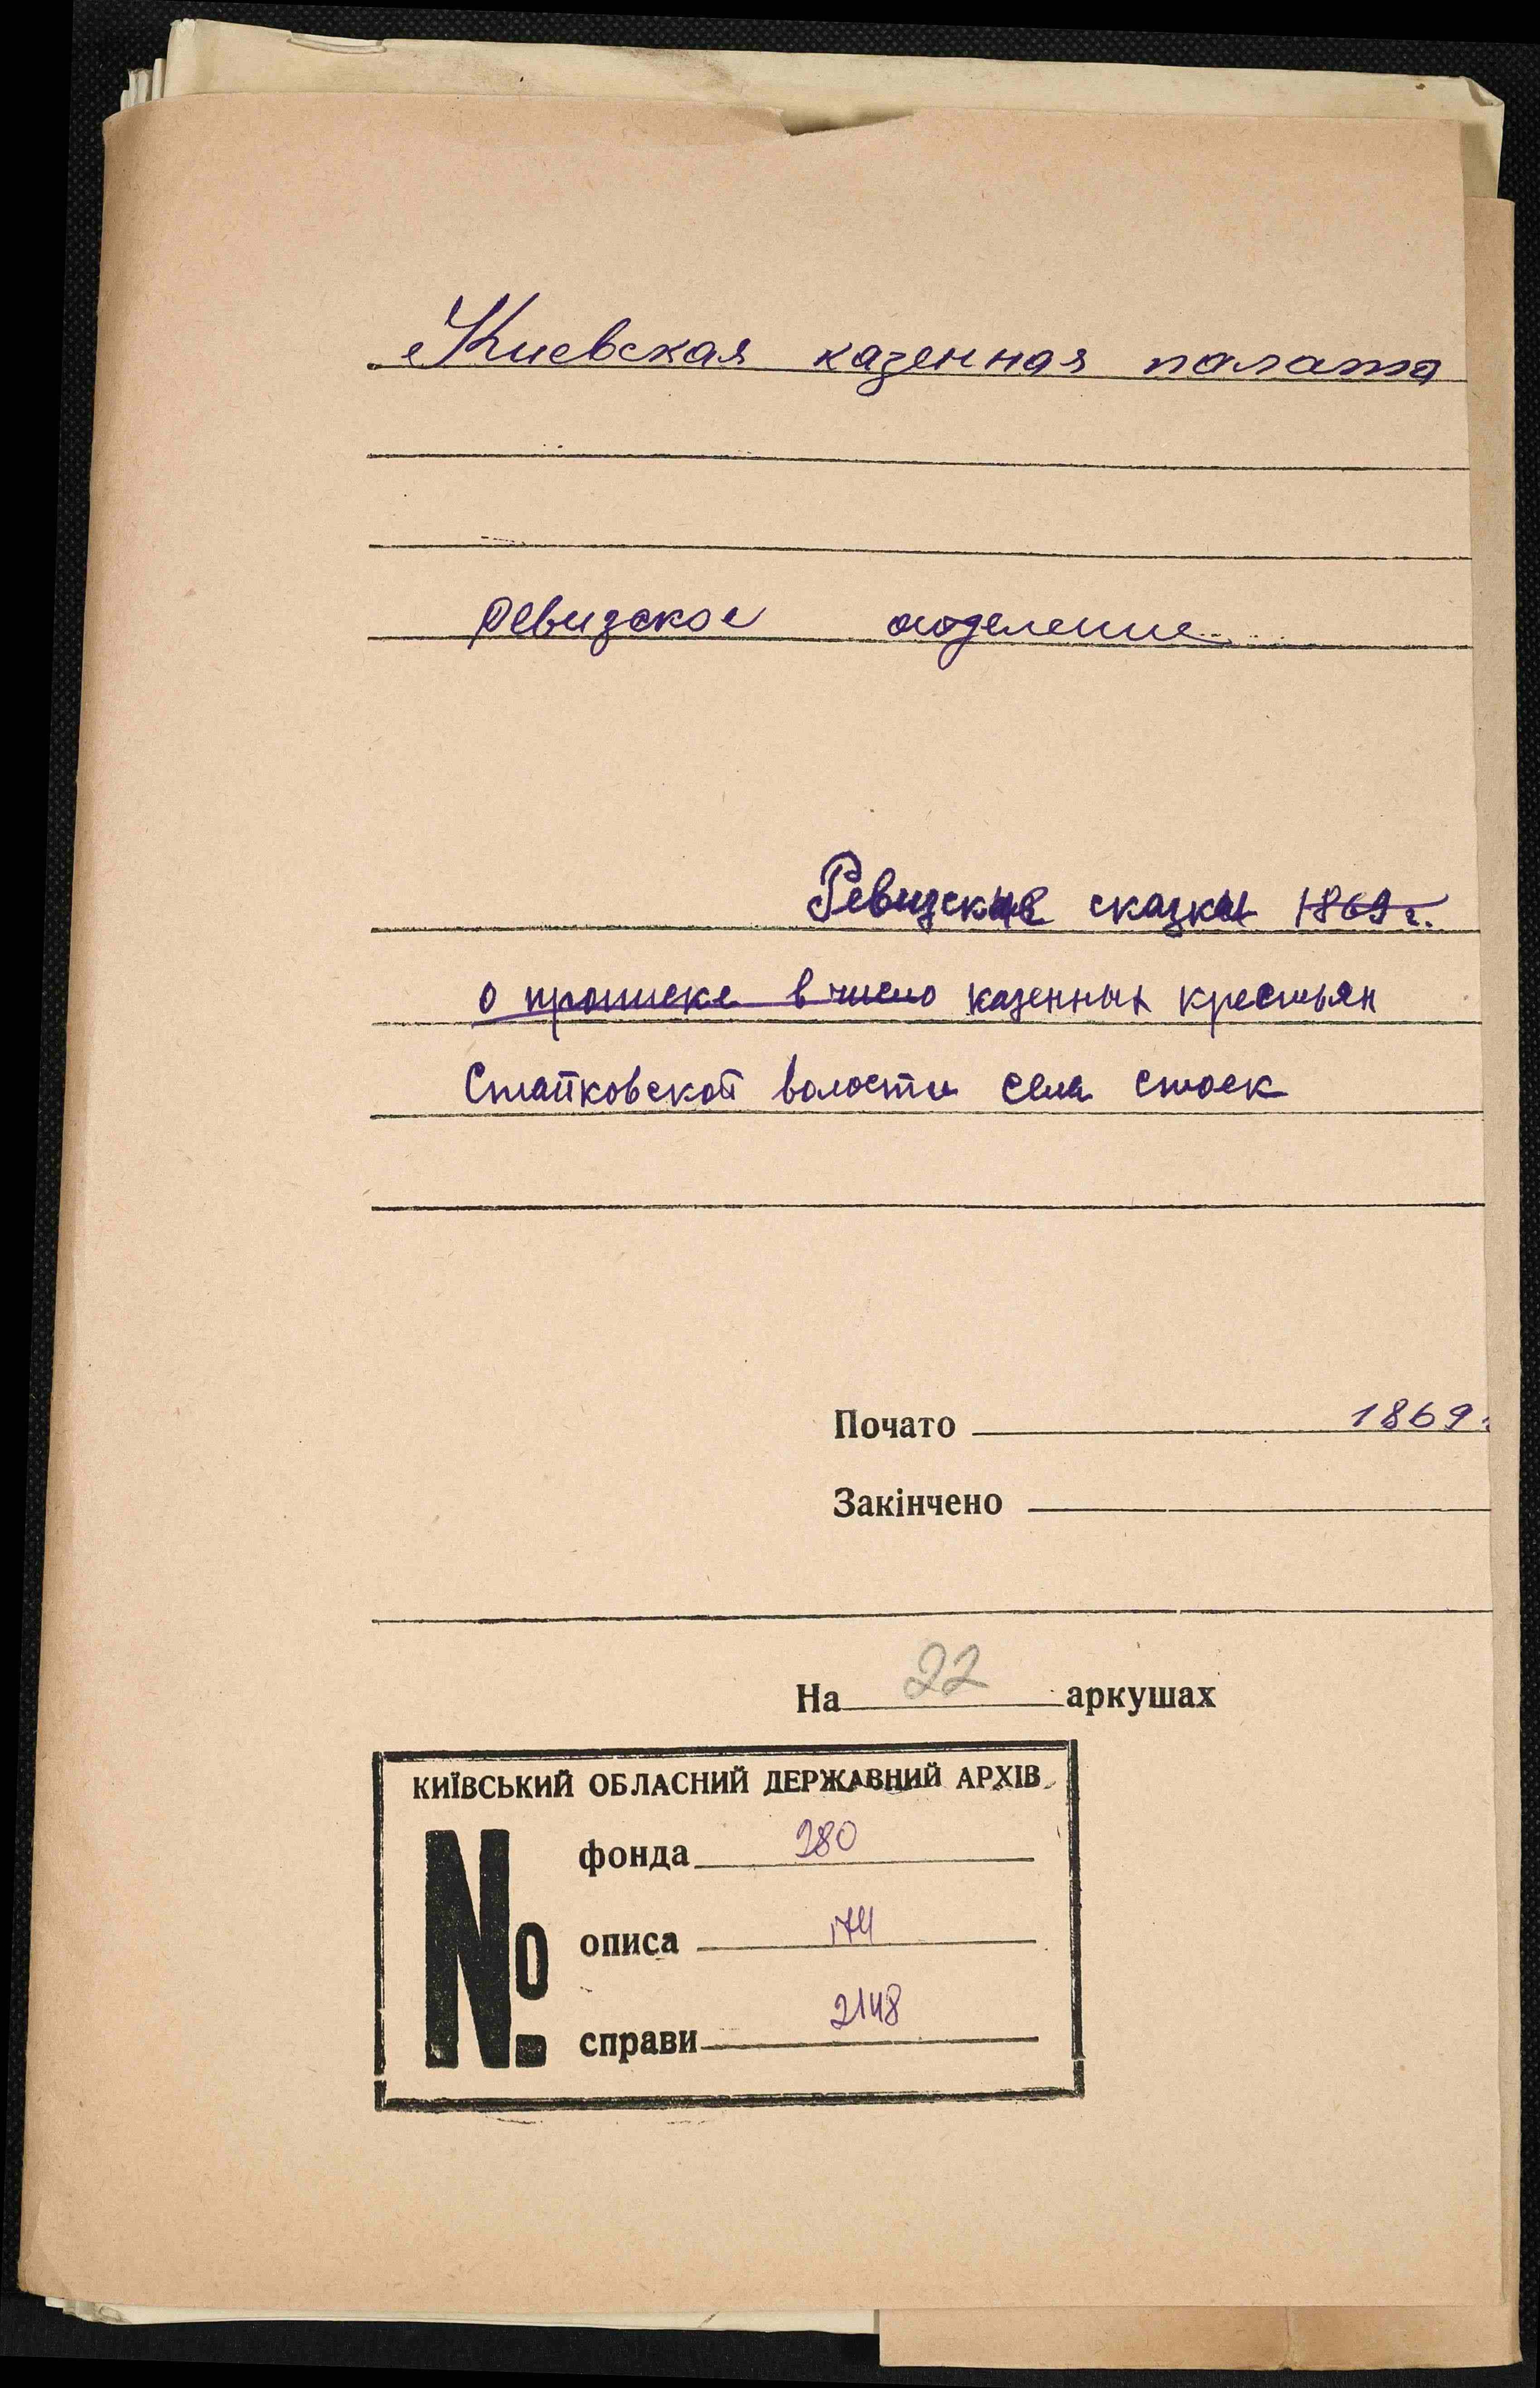 Киевская казенная палата
ревизское отделение
Ревизские сказки 1869 г.
о прописке в число казенных крестьян
Стайковской волости села Стоек
Почато 1869 г.
Закінчено
На 22 аркушах
КИЇВСЬКИЙ ОБЛАСНИЙ ДЕРЖАВНИЙ АРХІВ
№
фонда 280
описа 174
справи 2148